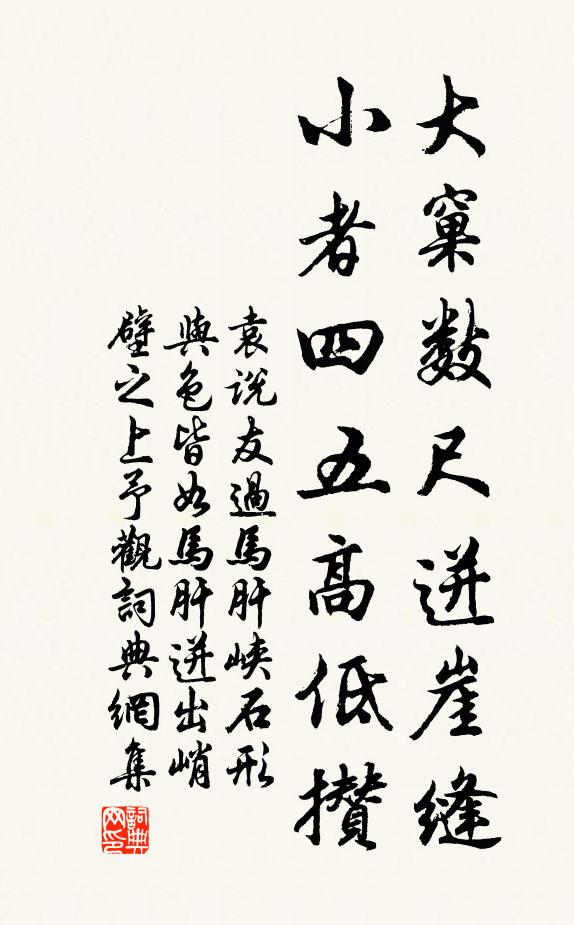 大窠数尺迸崖縫
小者四五高低攢
袁说友過馬肝峽石形
與色皆如馬肝迸出峭
壁之上予觀詞典網集
詞典网印